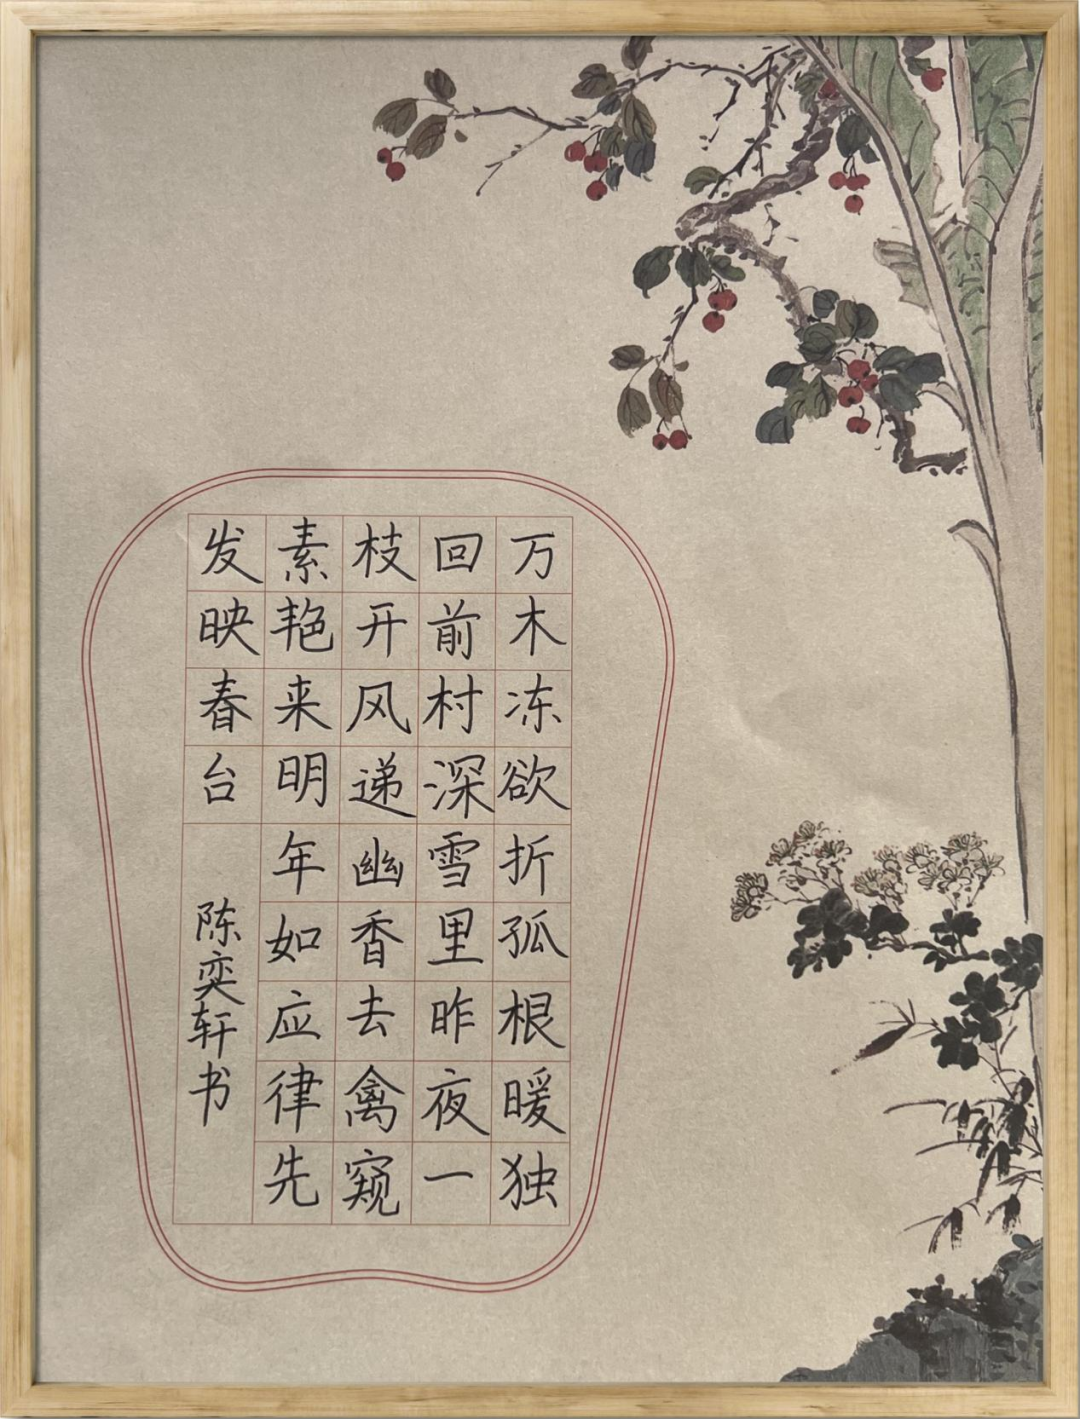 万木冻欲折孤根暖独
回前村深雪里昨夜一
枝开风递幽香去禽窥
素艳来明年如应律先
发映春台
陈奕轩书